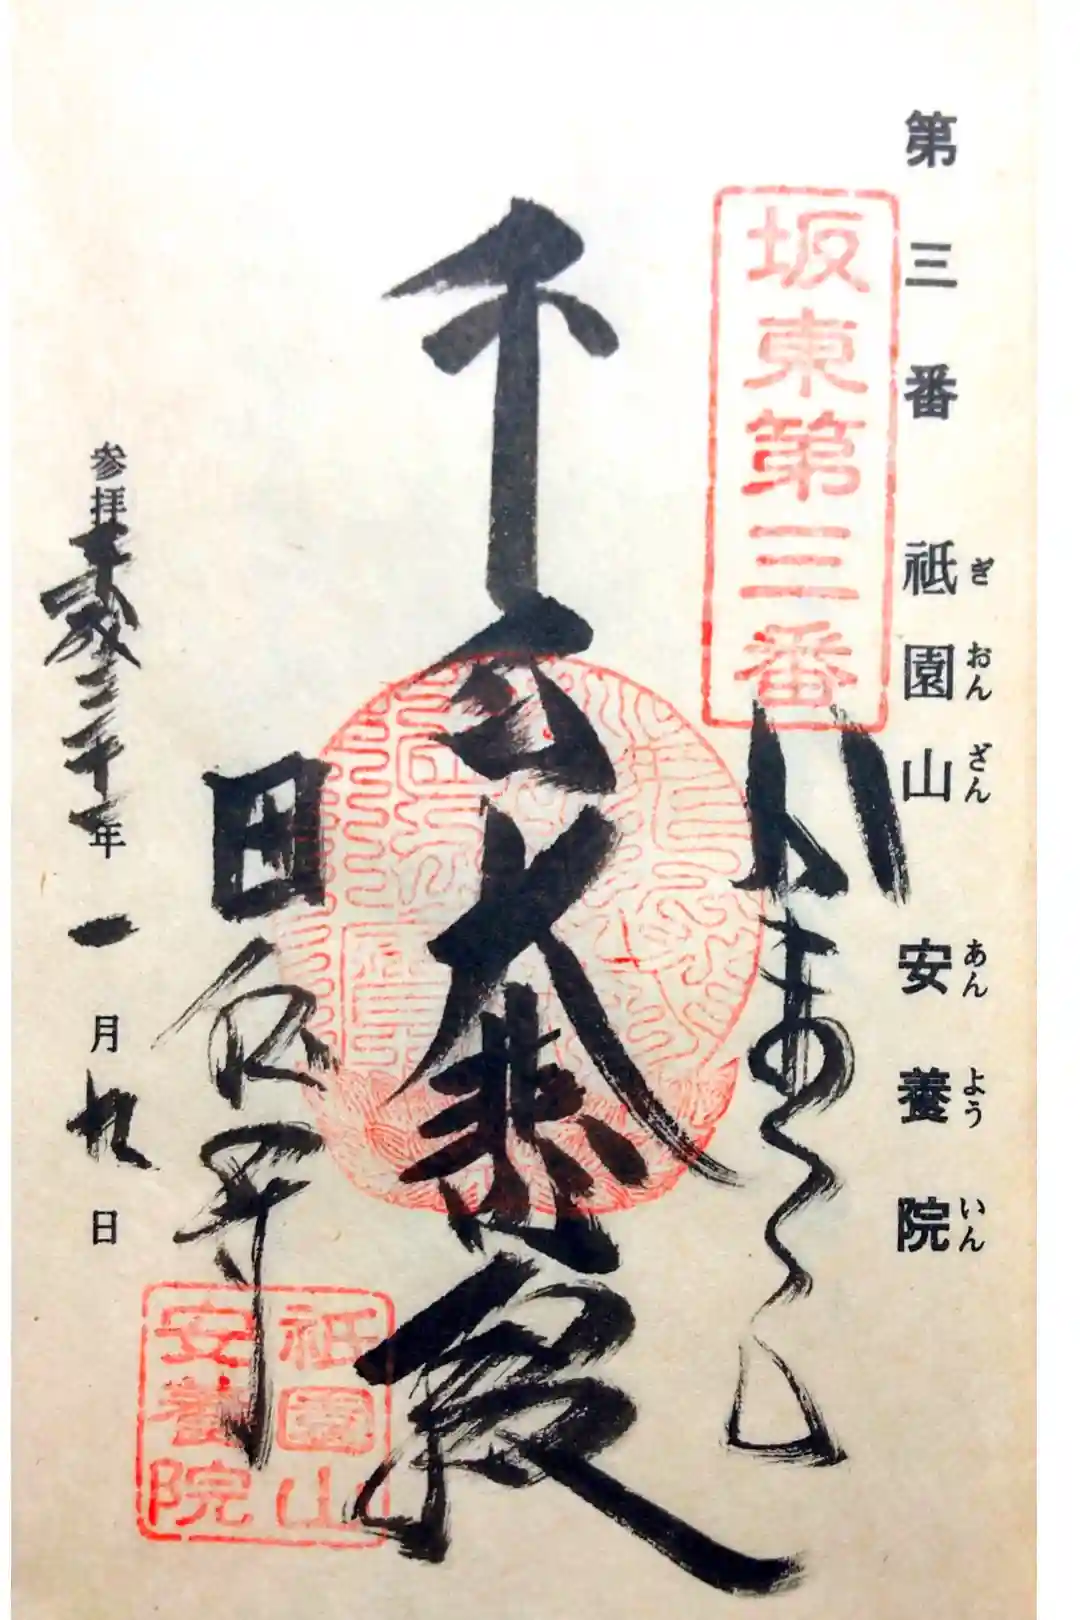 第三番 祇園山 安養院
ぎおんざん あんよういん
坂東第三番
かまくら
千手大悲殿
田代寺
祇園山
安養院
参拝平成三十年一月九日